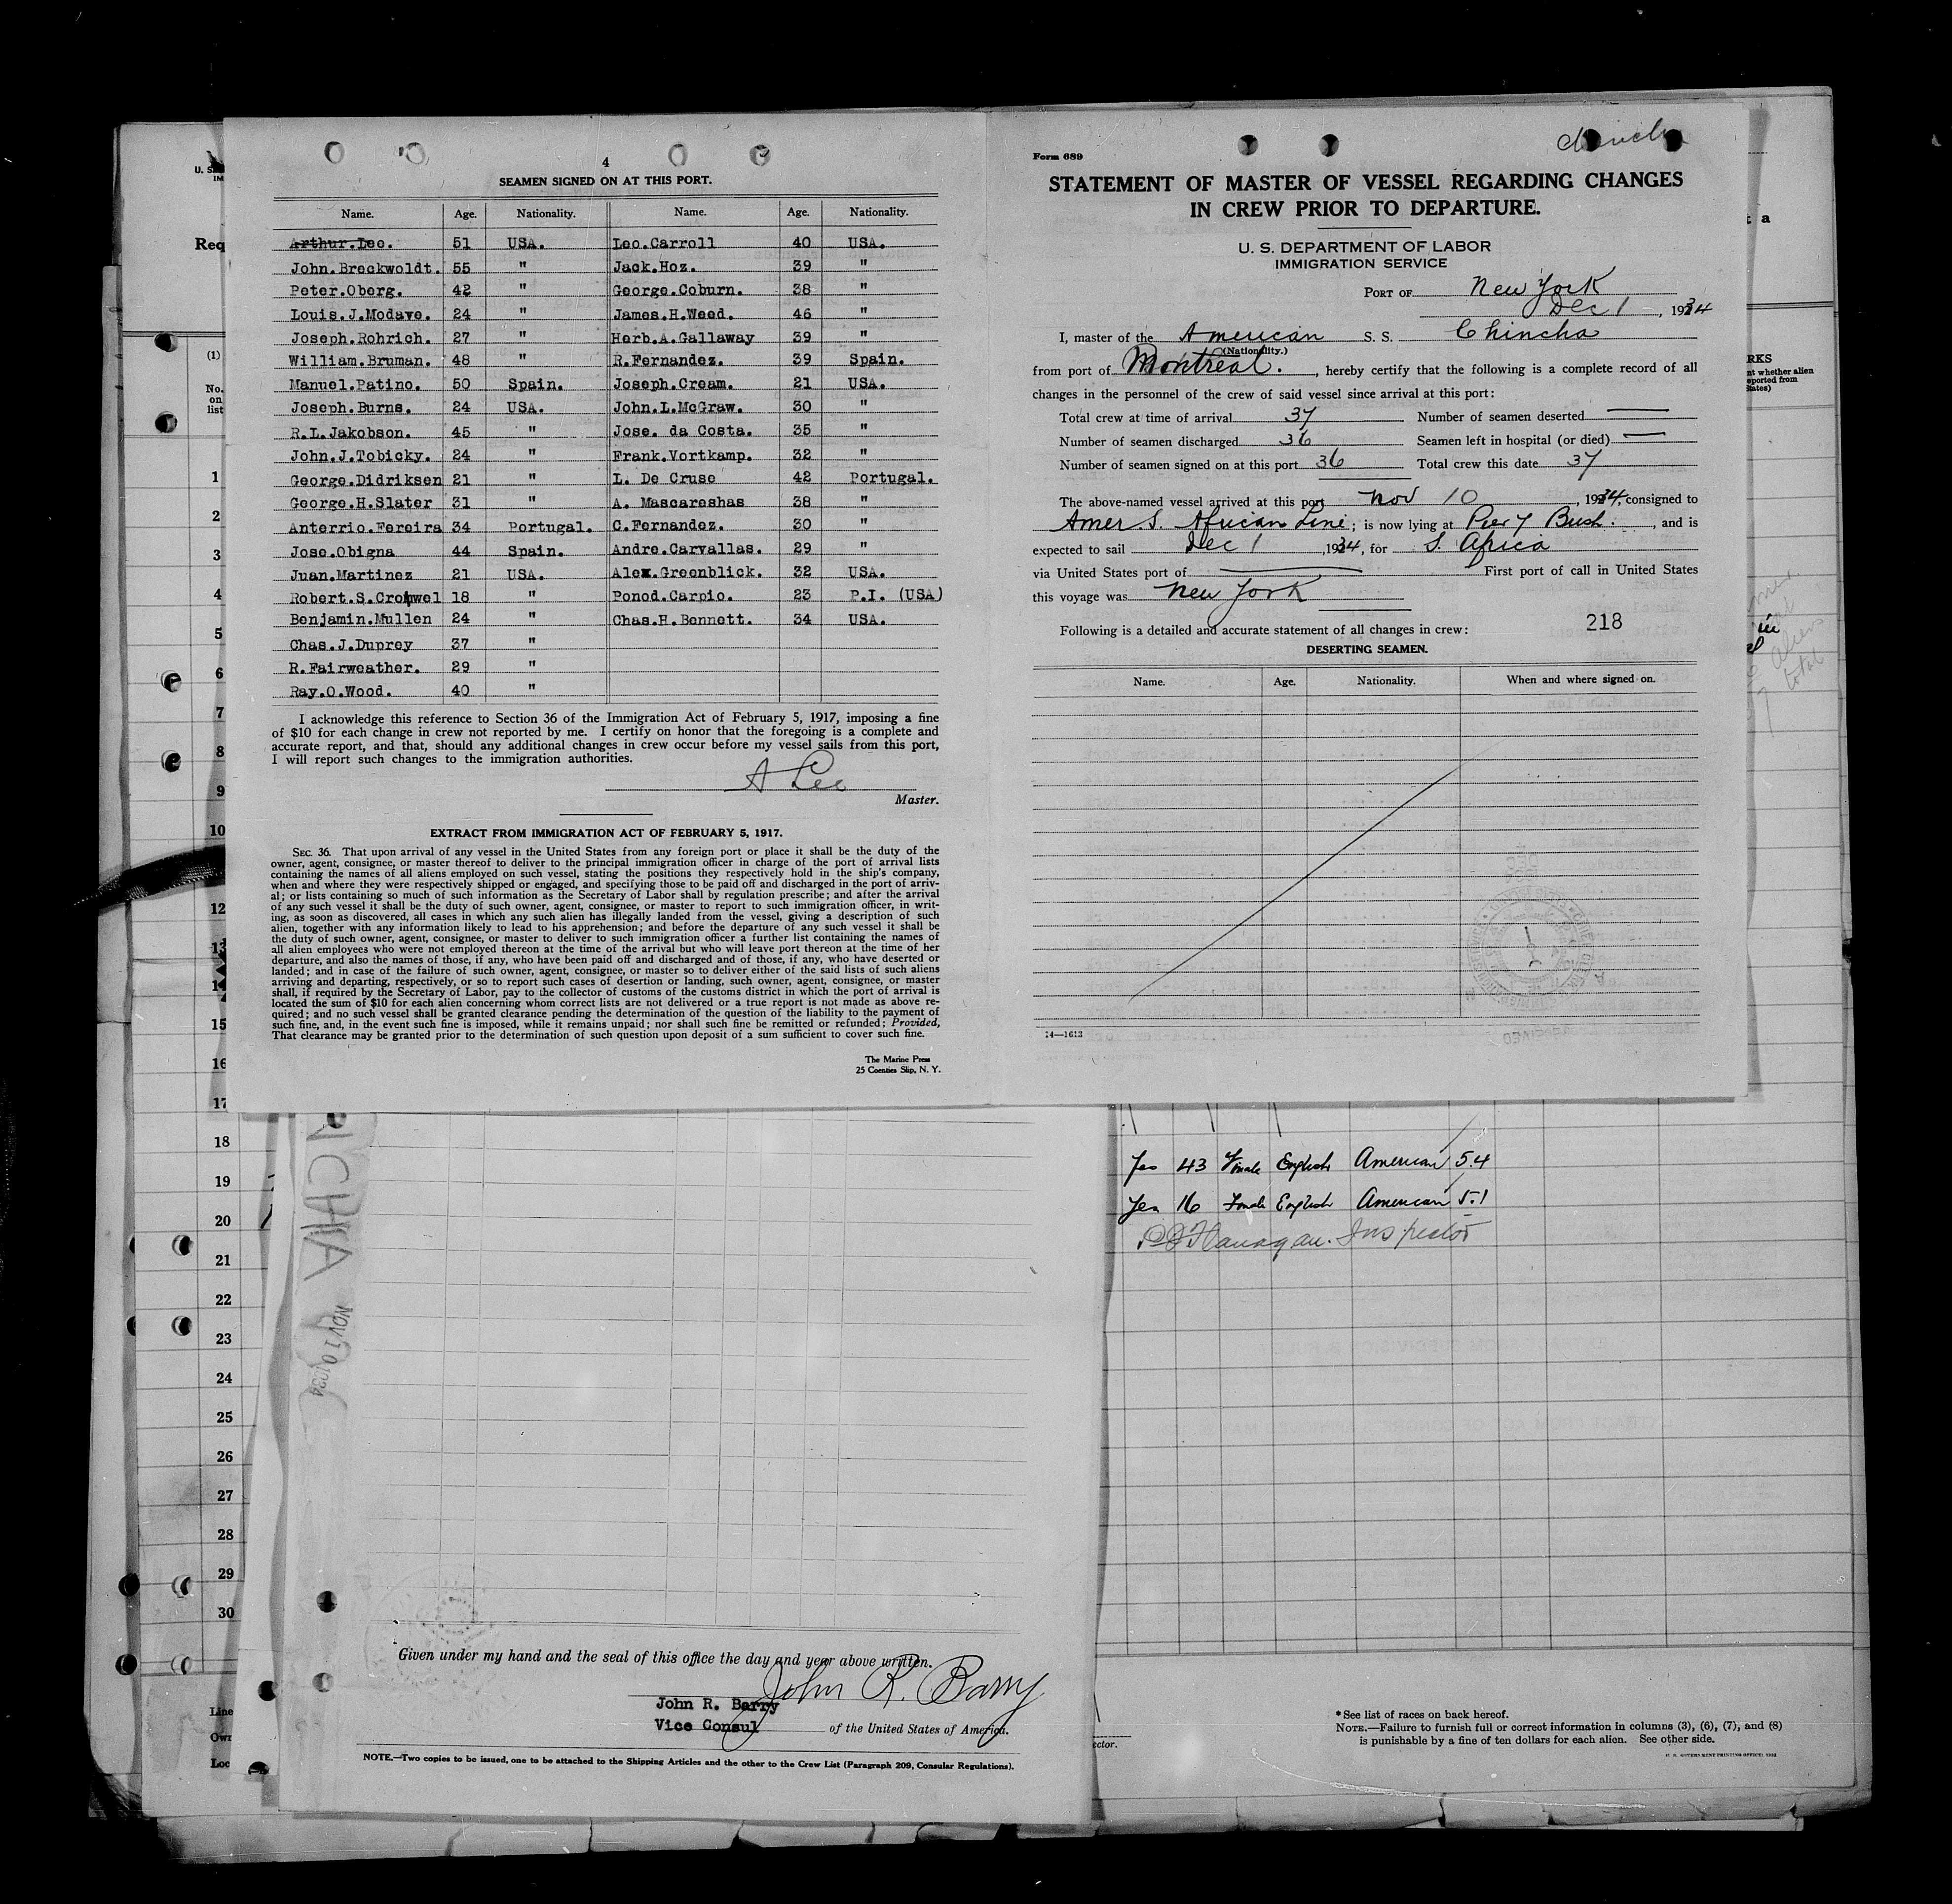 4
SEAMEN SIGNED ON AT THIS PORT.
Name. Age. Nationality. Name. Age. Nationality.
Arthur.Lee. 51 USA. Leo.Carroll 40 USA.
John.Breckwoldt. 55 " Jack.Hoz. 39 "
Peter.Oberg. 42 " George.Coburn. 38 "
Louis.J.Modave. 24 " James.H.Weed. 46 "
Joseph.Rohrich. 27 " Herb.A.Gallaway 39 "
William.Bruman. 48 " R.Fernandez. 39 Spain.
Manuel.Patino. 50 Spain. Joseph.Cream. 21 USA.
Joseph.Burns. 24 USA. John.L.McGraw. 30 "
R.L.Jakobson. 45 " Jose. da Costa. 35 "
John.J.Tobicky. 24 " Frank.Vortkamp. 32 "
George.Didriksen 21 " L. De Cruse 42 Portugal.
George.H.Slater 31 " A. Mascareshas 38 "
Anterrio.Fereira 34 Portugal. C.Fernandez. 30 "
Jose.Obigna 44 Spain. Andre.Carvallas. 29 "
Juan.Martinez 21 USA. Alex.Greenblick. 32 USA.
Robert.S.Cromwel 18 " Ponod.Carpio. 23 P.I. (USA)
Benjamin.Mullen 24 " Chas.H.Bennett. 34 USA.
Chas.J.Duprey 37 "
R.Fairweather. 29 "
Ray.O.Wood. 40 "
I acknowledge this reference to Section 36 of the Immigration Act of February 5, 1917, imposing a fine
of $10 for each change in crew not reported by me. I certify on honor that the foregoing is a complete and
accurate report, and that, should any additional changes in crew occur before my vessel sails from this port,
I will report such changes to the immigration authorities.
A Lee
Master.
EXTRACT FROM IMMIGRATION ACT OF FEBRUARY 5, 1917.
SEC. 36. That upon arrival of any vessel in the United States from any foreign port or place it shall be the duty of the
owner, agent, consignee, or master thereof to deliver to the principal immigration officer in charge of the port of arrival lists
containing the names of all aliens employed on such vessel, stating the positions they respectively hold in the ship's company,
when and where they were respectively shipped or engaged, and specifying those to be paid off and discharged in the port of arriv-
al; or lists containing so much of such information as the Secretary of Labor shall by regulation prescribe; and after the arrival
of any such vessel it shall be the duty of such owner, agent, consignee, or master to report to such immigration officer, in writ-
ing, as soon as discovered, all cases in which any such alien has illegally landed from the vessel, giving a description of such
alien, together with any information likely to lead to his apprehension; and before the departure of any such vessel it shall be
the duty of such owner, agent, consignee, or master to deliver to such immigration officer a further list containing the names of
all alien employees who were not employed thereon at the time of the arrival but who will leave port thereon at the time of her
departure, and also the names of those, if any, who have been paid off and discharged and of those, if any, who have deserted or
landed; and in case of the failure of such owner, agent, consignee, or master so to deliver either of the said lists of such aliens
arriving and departing, respectively, or so to report such cases of desertion or landing, such owner, agent, consignee, or master
shall, if required by the Secretary of Labor, pay to the collector of customs of the customs district in which the port of arrival is
located the sum of $10 for each alien concerning whom correct lists are not delivered or a true report is not made as above re-
quired; and no such vessel shall be granted clearance pending the determination of the question of the liability to the payment of
such fine, and, in the event such fine is imposed, while it remains unpaid; nor shall such fine be remitted or refunded; Provided,
That clearance may be granted prior to the determination of such question upon deposit of a sum sufficient to cover such fine.
The Marine Press
25 Coenties Slip, N. Y.
Form 689
STATEMENT OF MASTER OF VESSEL REGARDING CHANGES
IN CREW PRIOR TO DEPARTURE.
U. S. DEPARTMENT OF LABOR
IMMIGRATION SERVICE
PORT OF New York
Dec 1, 1934
I, master of the American S. S. Chincha
(Nationality.)
from port of Montreal., hereby certify that the following is a complete record of all
changes in the personnel of the crew of said vessel since arrival at this port:
Total crew at time of arrival 37 Number of seamen deserted —
Number of seamen discharged 36 Seamen left in hospital (or died) —
Number of seamen signed on at this port 36 Total crew this date 37
The above-named vessel arrived at this port Nov 10, 1934, consigned to
Amer. S. African Line; is now lying at Pier 7 Bush., and is
expected to sail Dec 1, 1934, for S. Africa
via United States port of — First port of call in United States
this voyage was New York
Following is a detailed and accurate statement of all changes in crew: 218
DESERTING SEAMEN.
Name. Age. Nationality. When and where signed on.
14—1613
U. S.
IM
Req
(1)
No.
on
list
1
2
3
4
5
6
7
8
9
10
12
13
14
15
16
17
18
19
20
21
22
23
24
25
26
27
28
29
30
Line
Own
Loc
RKS
nt whether alien
eported from
States)
NOV 10 1934
Yes 43 Female English American 5.4
Yes 16 Female English American 5.1
Flanagan. Inspector
Given under my hand and the seal of this office the day and year above written.
John R. Barry
John R. Barry
Vice Consul of the United States of America.
NOTE.—Two copies to be issued, one to be attached to the Shipping Articles and the other to the Crew List (Paragraph 209, Consular Regulations).
ector.
*See list of races on back hereof.
NOTE.—Failure to furnish full or correct information in columns (3), (6), (7), and (8)
is punishable by a fine of ten dollars for each alien. See other side.